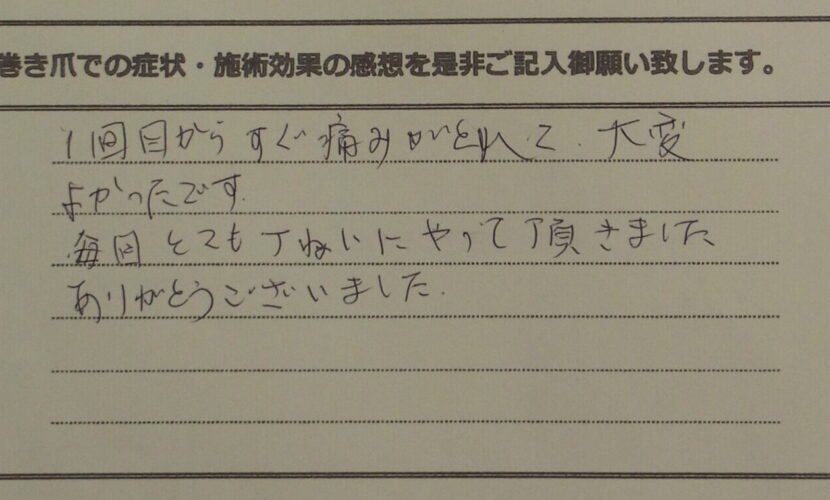 巻き爪での症状・施術効果の感想を是非ご記入御願い致します。
1回目からすぐ痛みがとれて、大変
よかったです。
毎回とても丁ねいにやって頂きました
ありがとうございました。